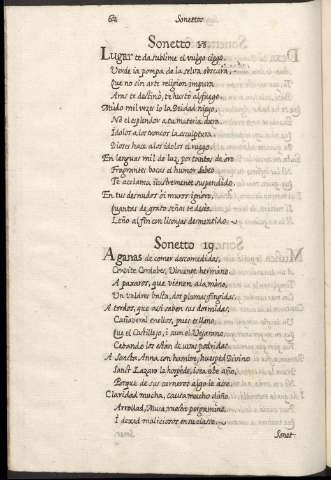 62 Sonettos
Sonetto 18
Lugar te da sublime el vulgo ciego,
Verde ia pompa de la selva obscura,
Que no sin arte religion impura
Aras te destinó, te hurtó al fuego.
Mudo mil vezes io la Deidad niego,
No el esplendor a tu materia duro
Idolos a los troncos la esculptura,
Dioses hace a los idolos el ruego.
En lenguas mil de luz, por tantas de oro
Fragrantes bocas el humor Sabeo
Te aclama, ilustremente suspendido.
En tus desnudos oi muros ignoro,
Quantas de grato señas te deseo,
Leño al fin con lisonjas desmentido.
Sonetto 19
A ganas de comer descomedidas,
Convite Cordobes, Vimanet hermano
A pasaros, que vienen a la mano,
Un valdres basta, dos plumas fingidas.
A tordos, que assi saben sus dormidas,
Cañaveral en ellos, pues es llano,
Que el Castillejo, i aun el Vejarano,
Cebando los están de uvas podridas.
A Sancta Anna con hambre, huesped Divino
Sanct Lazaro la hospede, i sea este año,
Porque de sus carneros algo le
Claridad mucha, causa mucho daño,
Arrollad, Musa, vuestro pergamino,
I dexad maliciosos en su
Sonet-